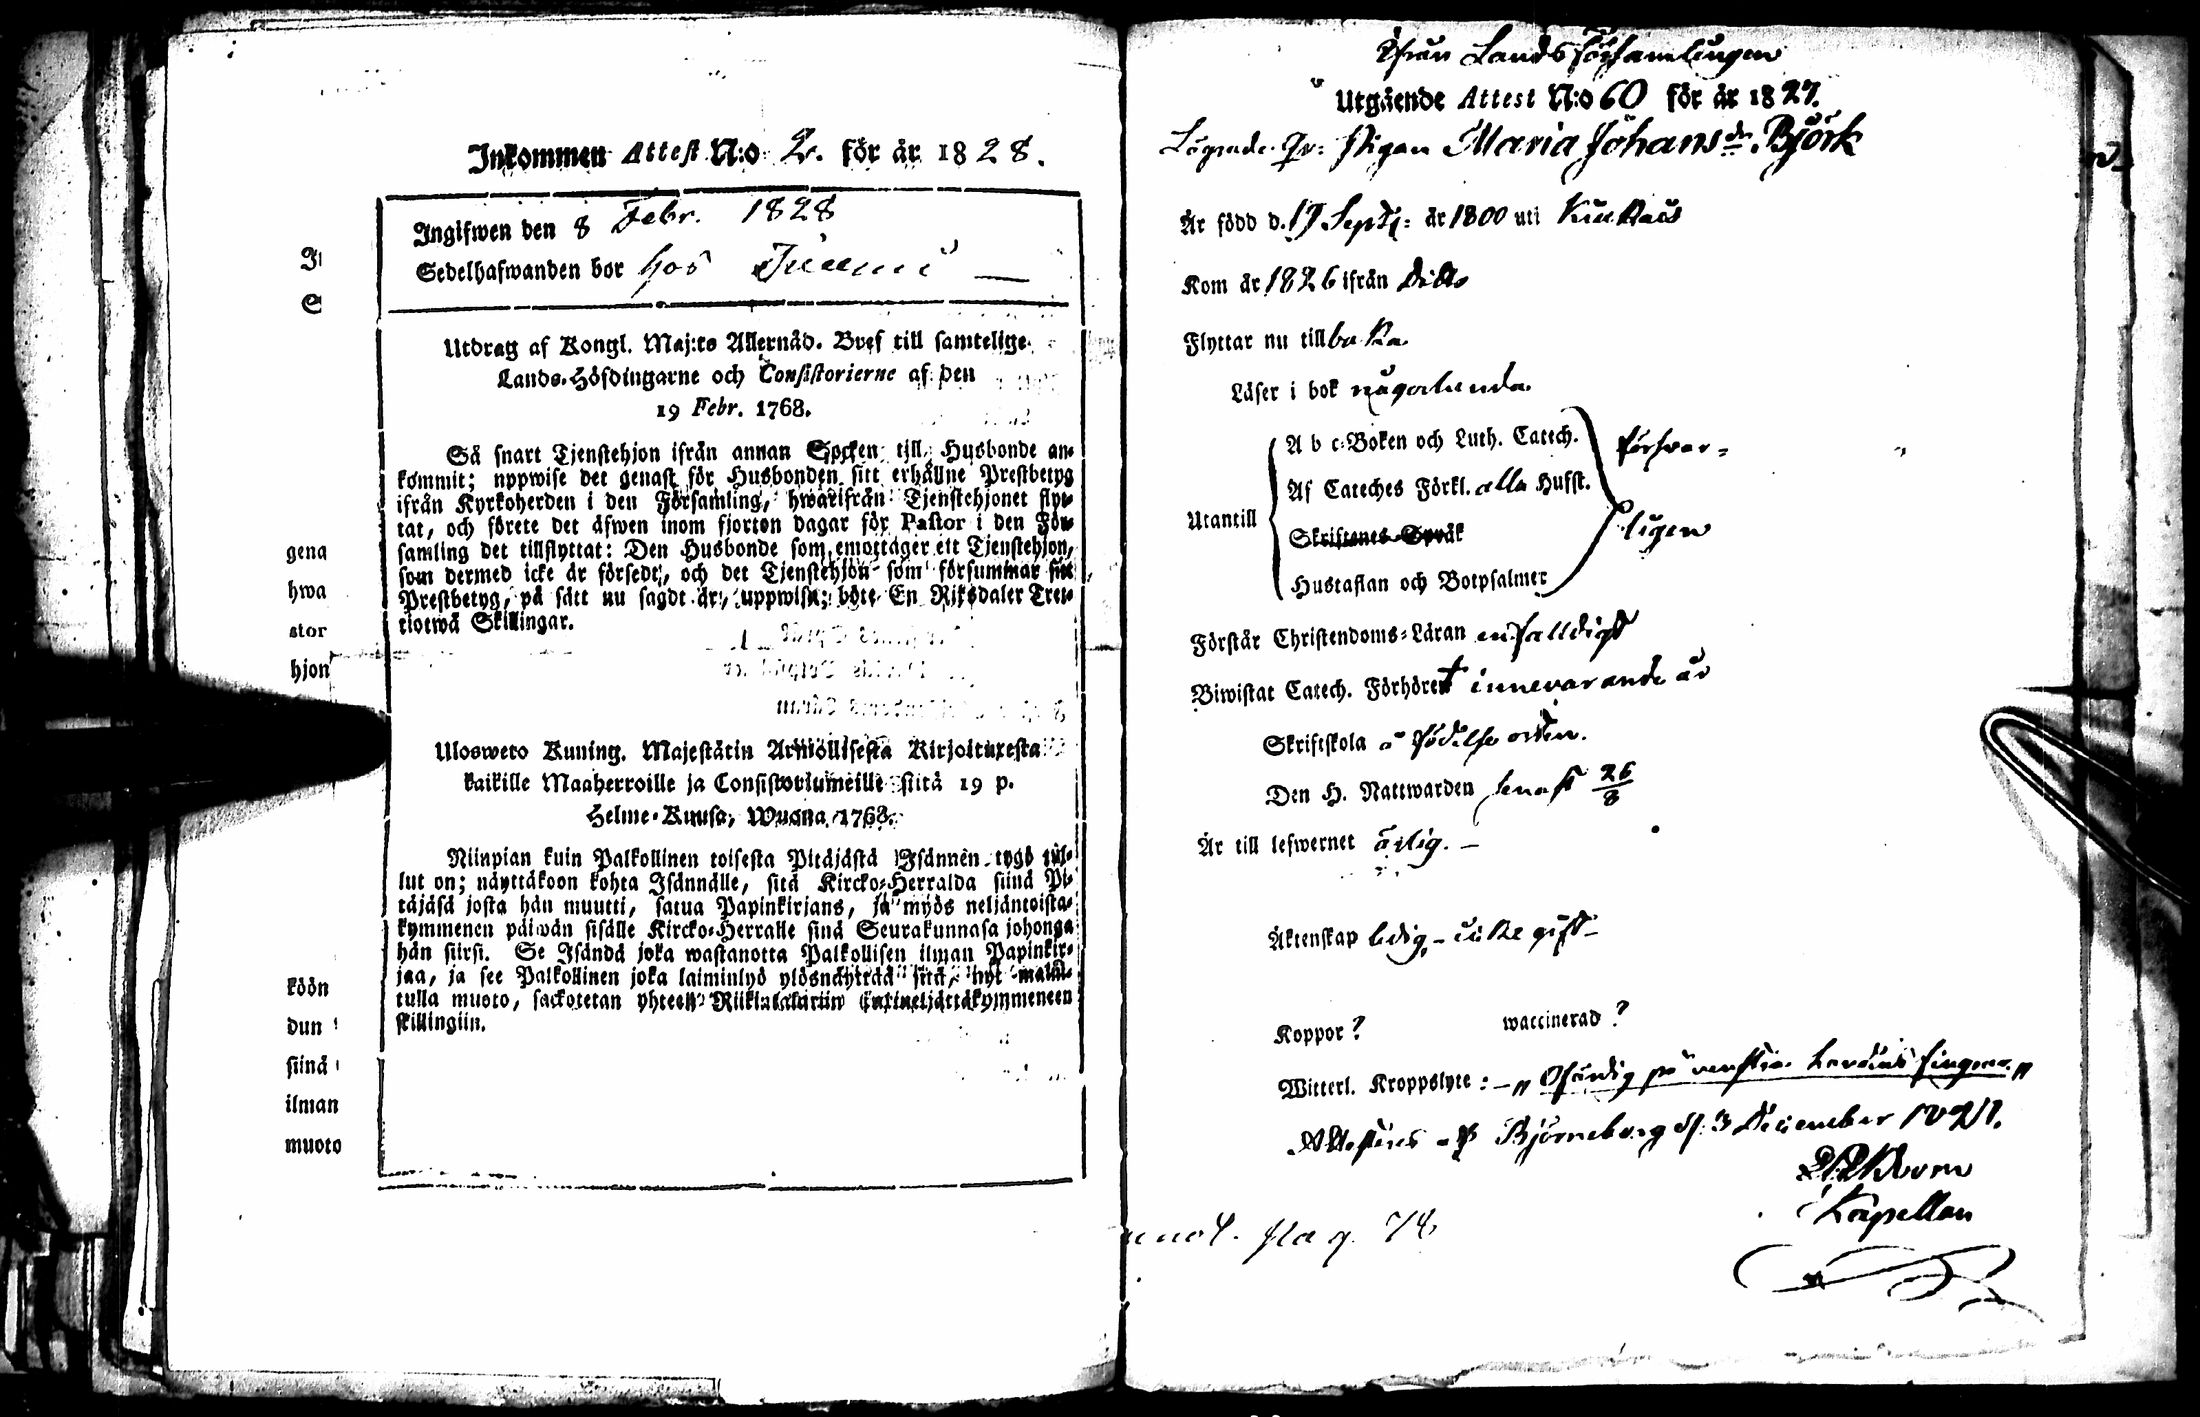 Inkommen Attest N:o 2. för år 1828.
Ingifwen den 8 Febr. 1828
Sedelhafwanden bor hos
Utdrag af Kongl. Maj:ts Allernåd. Bref till samtelige
Lands-Höfdingarne och Consistorierne af den
19 Febr. 1768.
Så snart Tjenstehjon ifrån annan Socken till Husbonde an-
kommit; uppwise det genast för Husbonden sitt erhållne Prestbetyg
ifrån Kyrkoherden i den Församling, hwarifrån Tjenstehjonet flyt-
tat, och förete det äfwen inom fjorton dagar för Pastor i den För-
samling det tillflyttat: Den Husbonde som emottager ett Tjenstehjon,
som dermed icke är försedt, och det Tjenstehjon som försummar sitt
Prestbetyg, på sätt nu sagdt är, uppwisa; böte En Riksdaler Tret-
tiotwå Skillingar.
Uloswето Kuning. Majestätin Armollisesta Kirjoituxesta
kaikille Maaherroille ja Consistoriumeille siitä 19 p.
Helme-Kuusa, Wuonna 1768.
Niinpian kuin Palkollinen toisesta Pitäjästä Isännen tygö tul-
lut on; näyttäkoon kohta Isännälle, sitä Kircko-Herralda siinä Pi-
täjäsä josta hän muutti, satua Papinkirjans, ja myös neljäntoista-
kymmenen päiwän sisälle Kircko-Herralle sinä Seurakunnasa johonga
hän siirsi. Se Isändä joka wastanotta Palkollisen ilman Papinkir-
jaa, ja see Palkollinen joka laiminlyö ylösnäyttää sitä, nyt mainit-
tulla muoto, sackotetan yhteen Riikintalariin
skillingiin.
gena
hwa
stor
hjon
köön
dun
siinä
ilman
muoto
Ifrån Landsförsamlingen
Utgående Attest N:o 60 för år 1827.
Pigan Maria Johansdr. Björk
Är född d. 17 Sept: år 1800 uti
Kom år 1826 ifrån dito
Flyttar nu tillbaka
Läser i bok någorlunda
Utantill
A b c-Boken och Luth. Catech.
Af Cateches Förkl. alla Hufst.
Skriftenes Språk
Hustaflan och Botpsalmer
försvar-
ligen
Förstår Christendoms-Läran enfalldigt
Biwistat Catech. Förhöret innevarande år
Skriftskola å födelse orten.
Den H. Nattwarden senast 26/8
Är till lefwernet ärlig. -
Äktenskap ledig - icke gift -
Koppor? waccinerad?
Witterl. Kroppslyte: - „ Ofärdig på venstra handens fingrar „
Attesteras af Björneborg d. 3 December 1827.
Kapellan
pag. 78